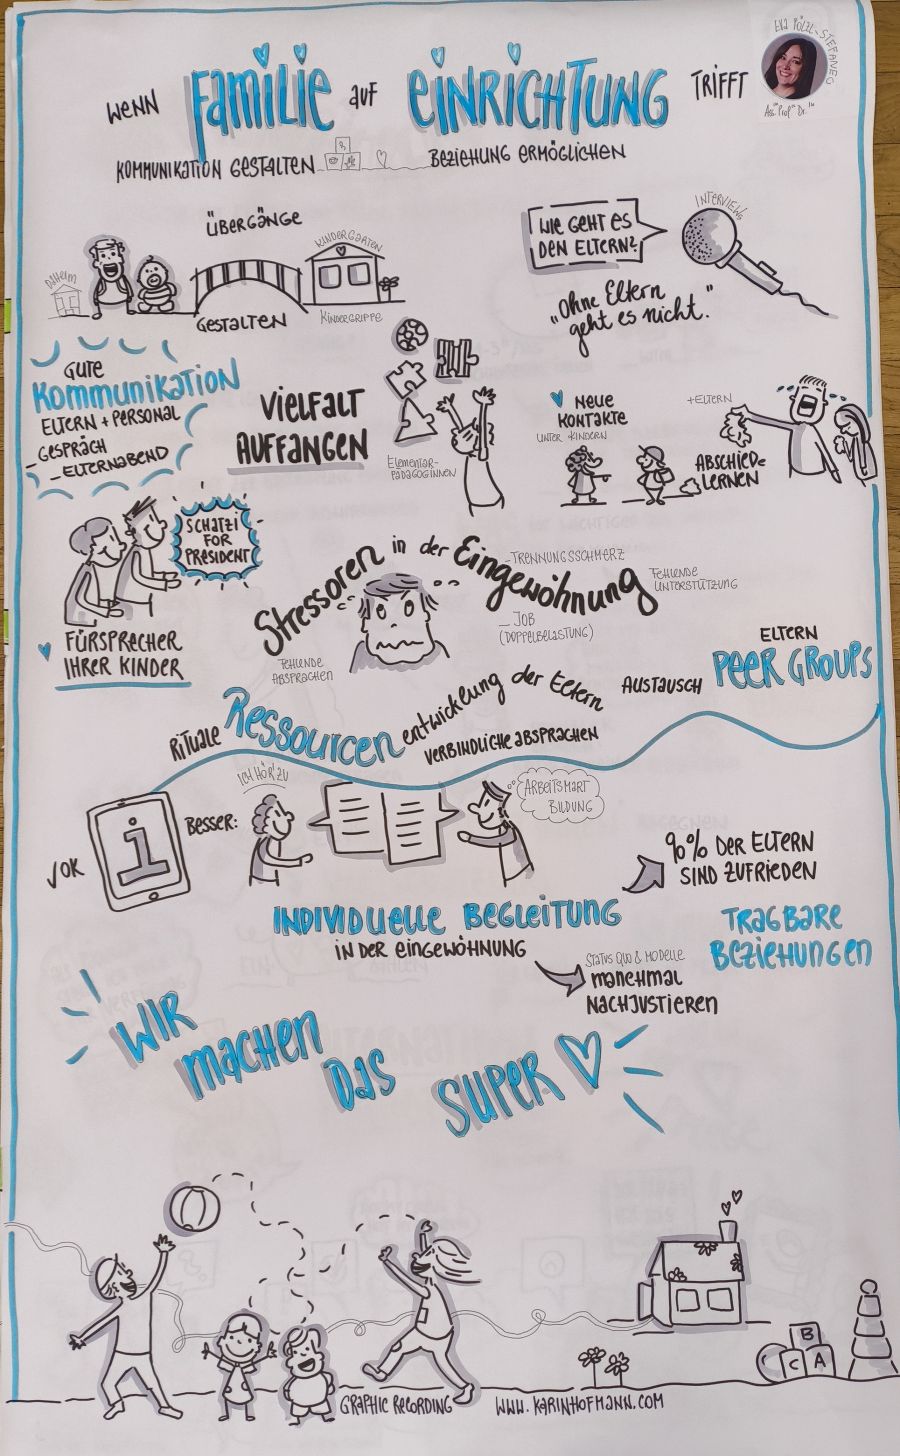 WENN FAMILIE AUF EINRICHTUNG TRIFFT
EVA PÖLZL-STEFANEC
Ass. Prof.in Dr.in
KOMMUNIKATION GESTALTEN
BEZIEHUNG ERMÖGLICHEN
ÜBERGÄNGE
DAHEIM
KINDERGARTEN
GESTALTEN
KINDERGRIPPE
WIE GEHT ES
DEN ELTERN?
INTERVIEWS
"Ohne Eltern
geht es nicht."
GUTE
KOMMUNIKATION
ELTERN + PERSONAL
- GESPRÄCH
- ELTERNABEND
VIELFALT
AUFFANGEN
ELEMENTAR-
PÄDAGOGINNEN
NEUE
KONTAKTE
UNTER KINDERN
+ELTERN
ABSCHIED
LERNEN
SCHATZI
FOR
PRESIDENT
FÜRSPRECHER
IHRER KINDER
Stressoren in der Eingewöhnung
- TRENNUNGSSCHMERZ
FEHLENDE
UNTERSTÜTZUNG
- JOB
(DOPPELBELASTUNG)
FEHLENDE
ABSPRACHEN
ELTERN
PEER GROUPS
AUSTAUSCH
RITUALE
Ressourcen entwicklung der Eltern
VERBINDLICHE ABSPRACHEN
VOK
i
BESSER:
ICH HÖR' ZU
ARBEITSMART
BILDUNG
90% DER ELTERN
SIND ZUFRIEDEN
INDIVIDUELLE BEGLEITUNG
IN DER EINGEWÖHNUNG
TRAGBARE
BEZIEHUNGEN
STATUS QUO & MODELLE
MANCHMAL
NACHJUSTIEREN
WIR
MACHEN
DAS
SUPER
B
C
C
A
GRAPHIC RECORDING
WWW.KARINHOFMANN.COM